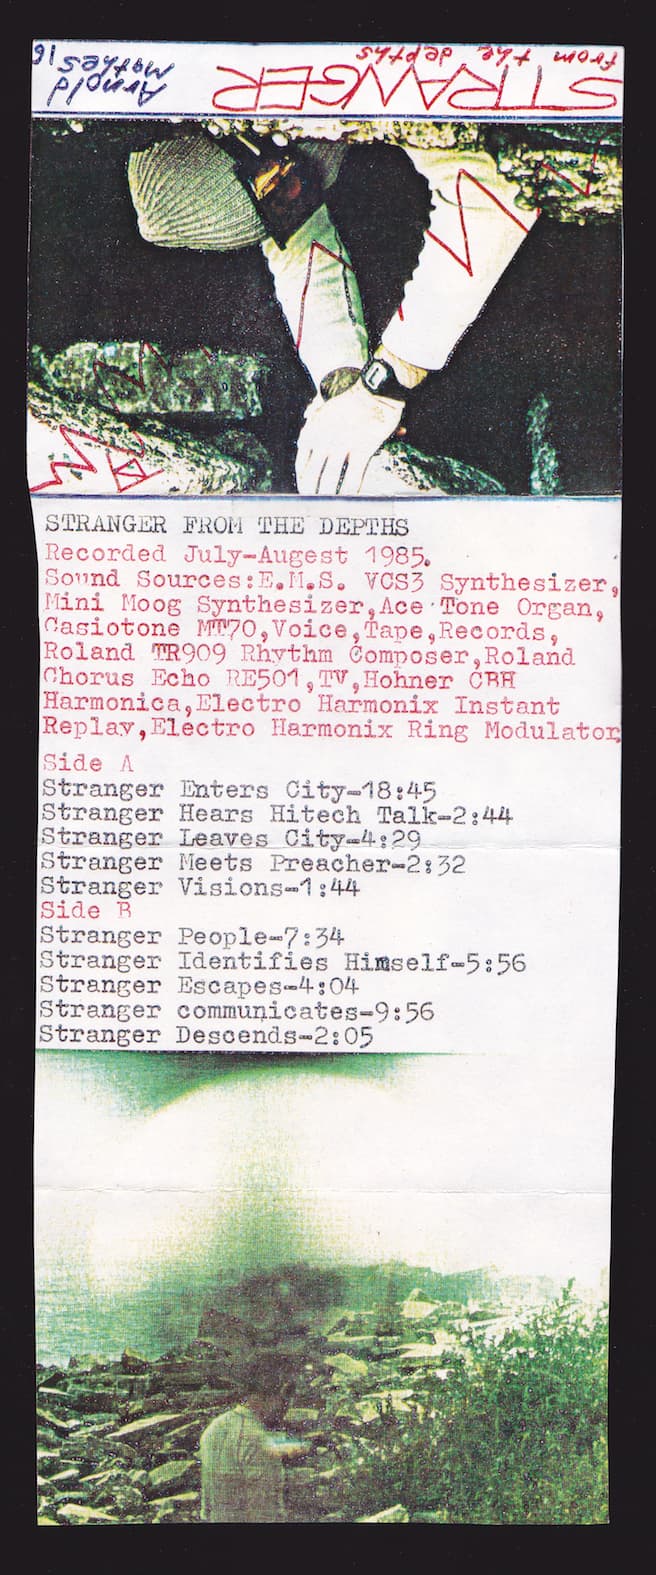 STRANGER
from the depths
Arnold
Mathes 16
STRANGER FROM THE DEPTHS
Recorded July-Augest 1985.
Sound Sources:E.M.S. VCS3 Synthesizer,
Mini Moog Synthesizer,Ace Tone Organ,
Casiotone MT70,Voice,Tape,Records,
Roland TR909 Rhythm Composer,Roland
Chorus Echo RE501,TV,Hohner CBH
Harmonica,Electro Harmonix Instant
Replay,Electro Harmonix Ring Modulator
Side A
Stranger Enters City-18:45
Stranger Hears Hitech Talk-2:44
Stranger Leaves City-4:29
Stranger Meets Preacher-2:32
Stranger Visions-1:44
Side B
Stranger People-7:34
Stranger Identifies Himself-5:56
Stranger Escapes-4:04
Stranger communicates-9:56
Stranger Descends-2:05